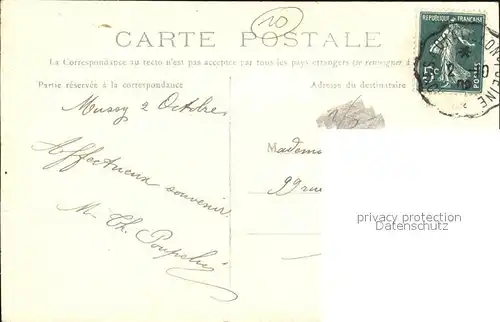 10
CARTE POSTALE
La Correspondance au recto n'est pas acceptée par tous les pays étrangers (se renseigner à
Partie réservée à la correspondance
Adresse du destinataire
RÉPUBLIQUE FRANÇAISE
5c
POSTES
Mussy 2 Octobre
Affectueux souvenir
M. Th.
Madems
99 rue
privacy protection
Datenschutz